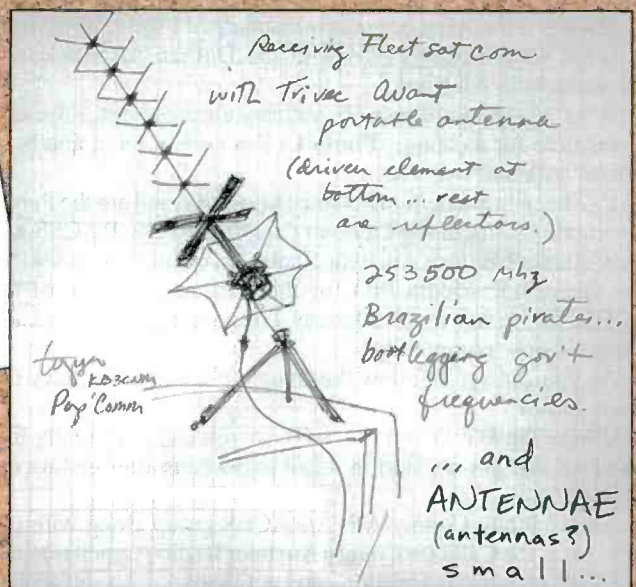 Receiving Fleet sat com
with Trivec Avant
portable antenna
(driven element at
bottom... rest
are reflectors.)
253500 Mhz
Brazilian pirates...
bootlegging gov't
frequencies.
KB3CUM
Pop'Comm
... and
ANTENNAE
(antennas?)
small...